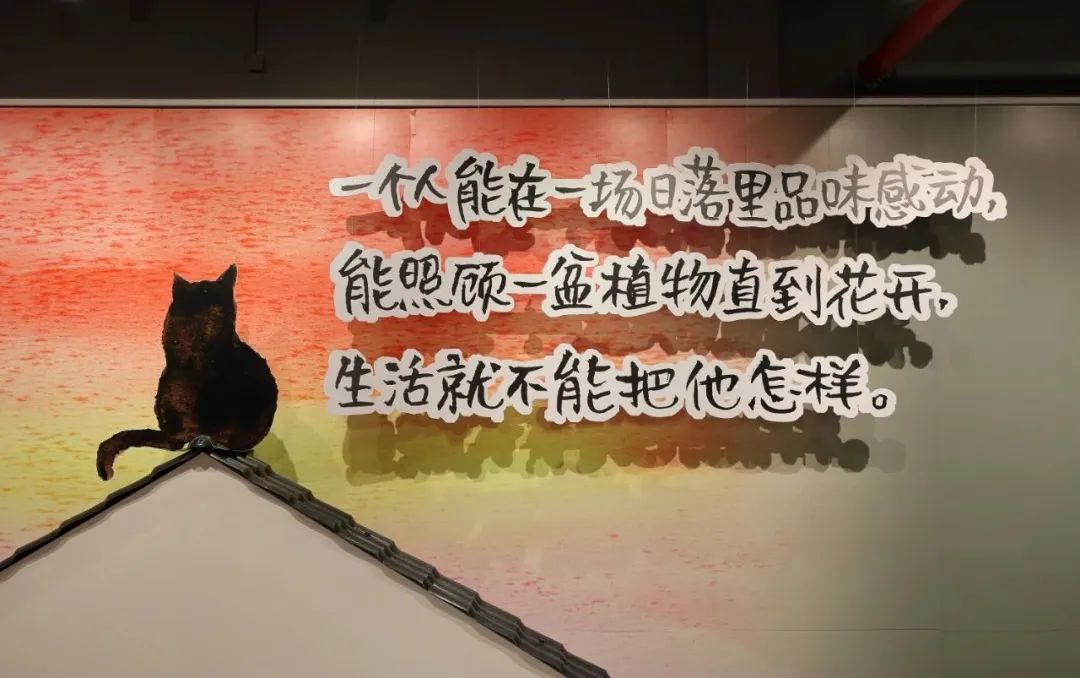 一个人能在一场日落里品味感动,
能照顾一盆植物直到花开,
生活就不能把他怎样。